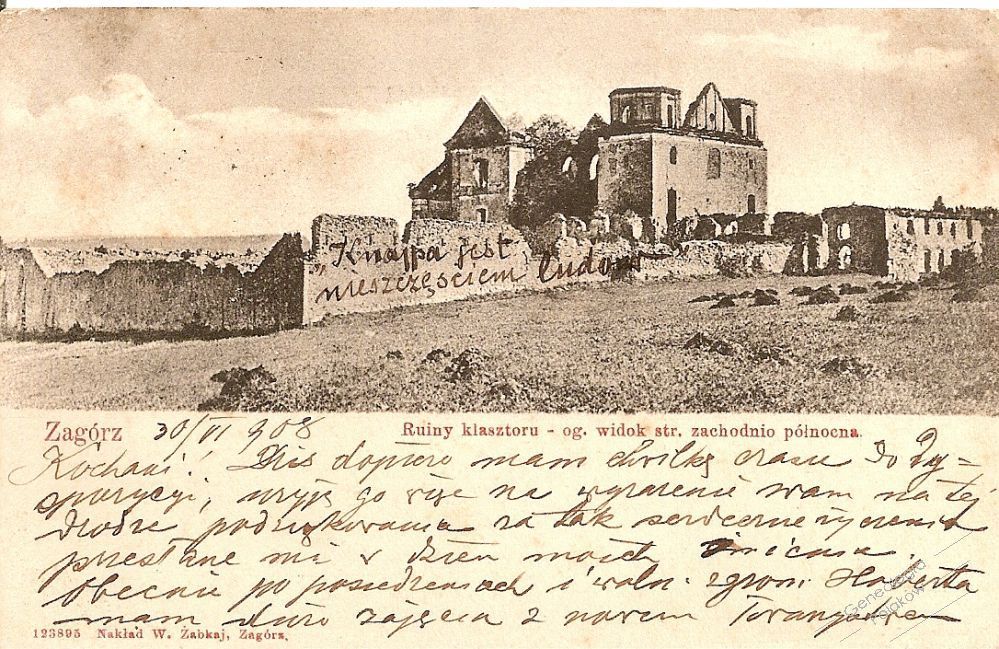 „Knajpa jest
nieszczęściem ludów"
Zagórz 30/VI 908
Ruiny klasztoru - og. widok str. zachodnio północna.
Kochani! Dziś dopiero mam chwilkę czasu do dy-
spozycyi, użyję go więc na wyrażenie wam na tej
drodze podziękowania za tak serdeczne życzenia
przesłane mi w dzień moich imienin.
Obecnie po posiedzeniach i waln. zgrom.
mam dużo zajęcia z nowem
123895 Nakład W. Żabkaj, Zagórz.
Genealodzy
Polaków